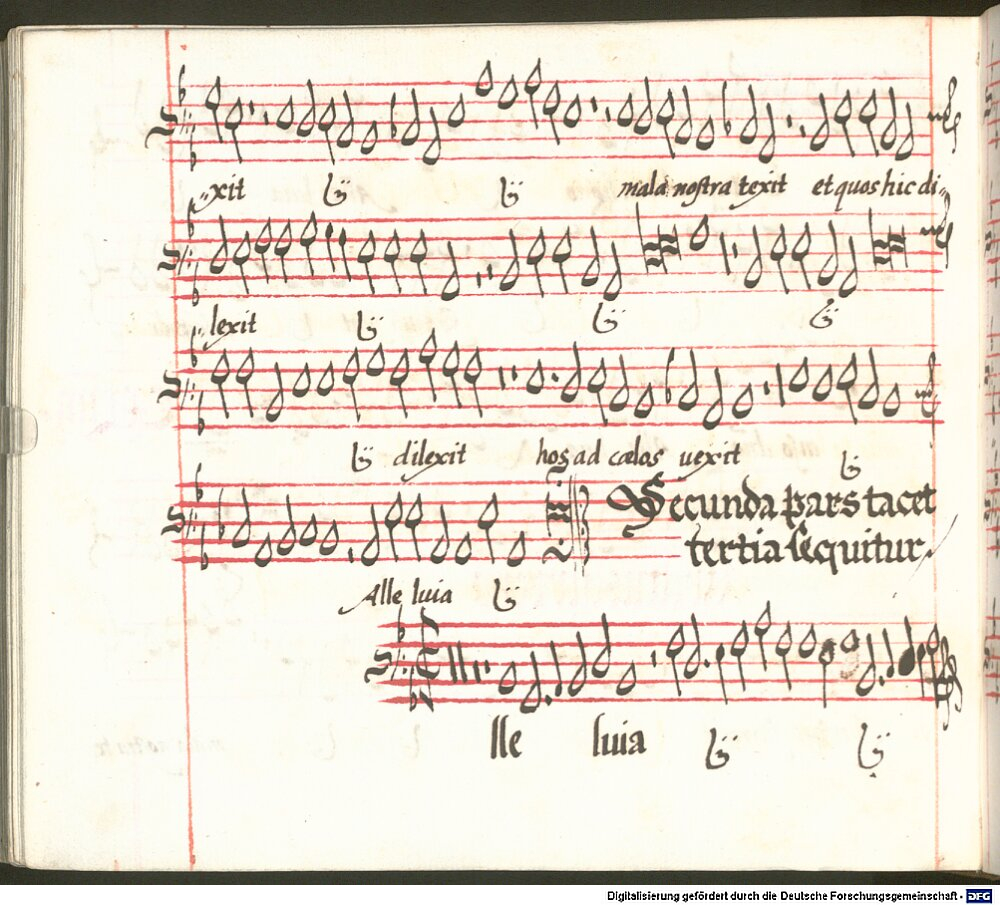 xit ij ij mala nostra texit et quos hic di
lexit ij ij ij
ij dilexit hos ad cœlos uexit ij
Secunda pars tacet
tertia sequitur.
Alle luia ij
lle luia ij ij
Digitalisierung gefördert durch die Deutsche Forschungsgemeinschaft - DFG